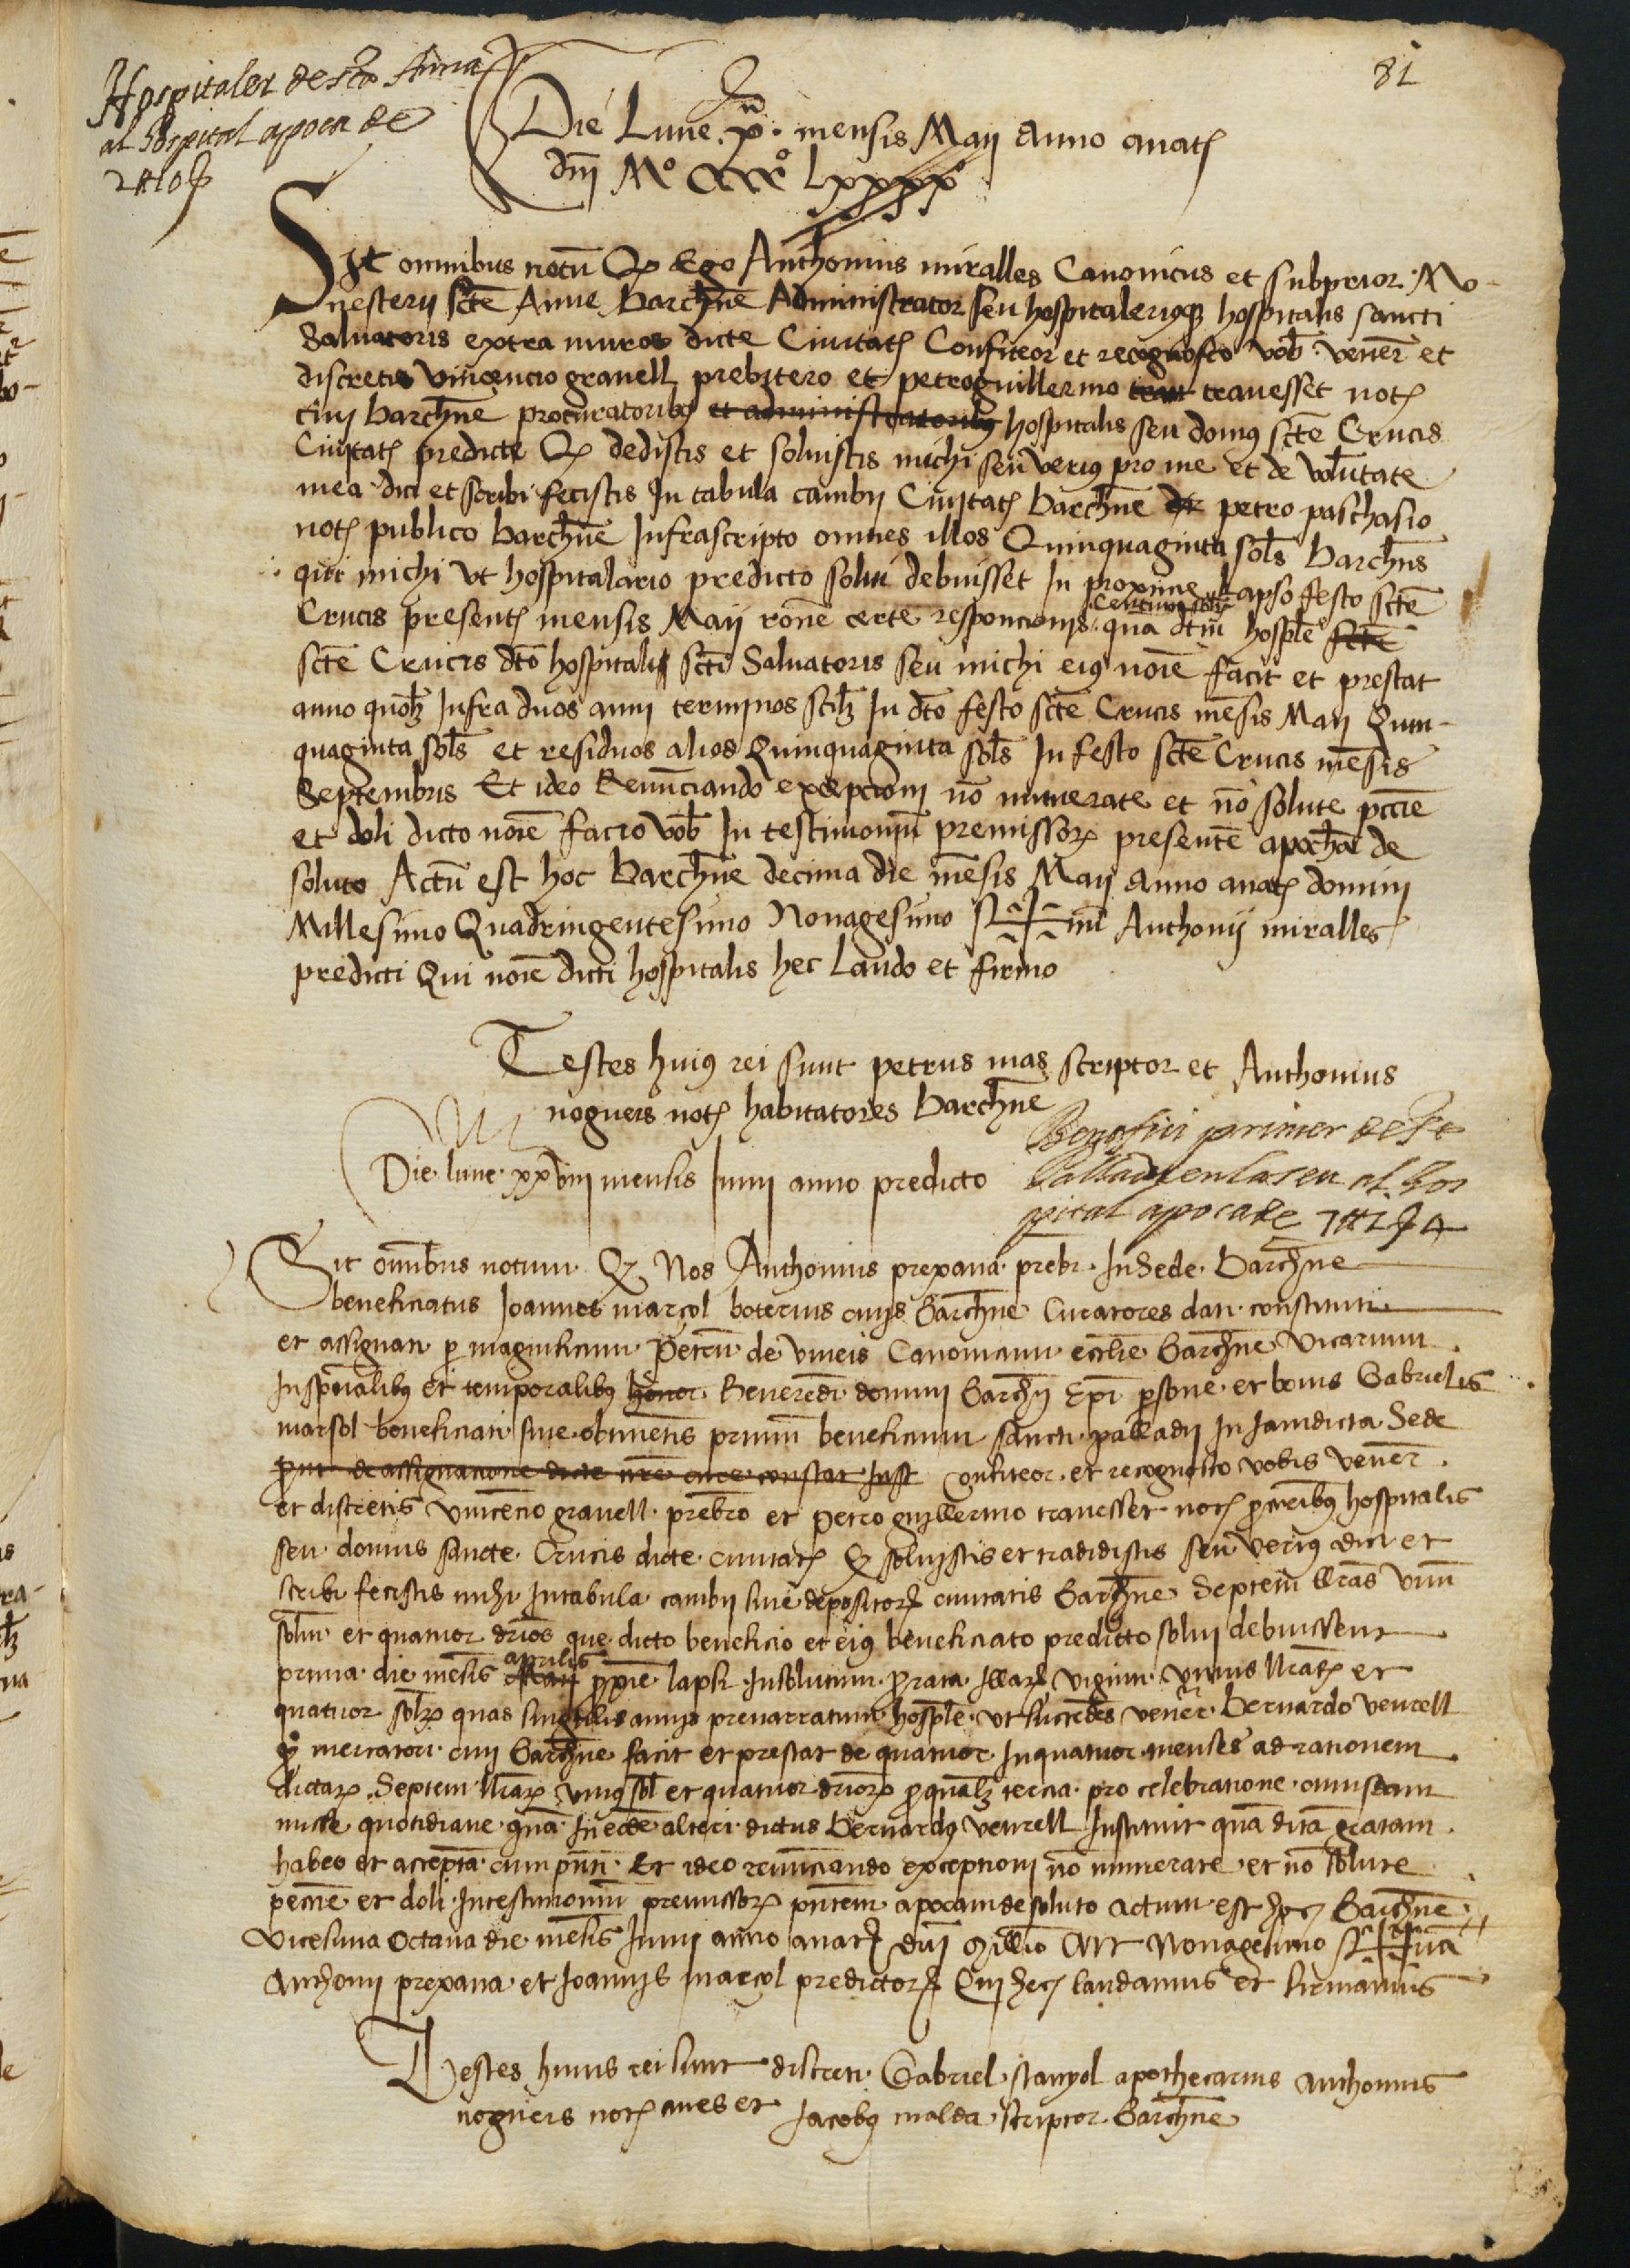 81
Hospitaler de sta Anna
al hospital apoca de
2 ₶ 10 s
Die Lune x mensis Maij Anno anatj
dnj Mº CCCCº Lxxxxº
Sit omnibus notũ Qp Ego Anthonius miralles Canonicus et subprior Mo-
nesterij scte Anne barchne Administrator seu hospitalerius hospitalis sancti
Saluatoris extra muros dicte Ciuitatj Confiteor et recognosco vob vener et
discretis vincencio grauell prebitero et petroguillermo trauesset notj
ciuj barchne procuratoribus et administratoribus hospitalis seu domus scte Crucis
Ciuitatj predicte Qp dedistis et soluistis michi seu verius pro me et de volutate
mea dici et scribi fecistis In tabula cambij Ciuitatj barchne petro paschasio
notj publico barchne Infrascripto omnes illos Quinquaginta sols barchns
qui michi vt hospitalario predicto solui debuisset In proxime lapso festo scte
Centum sols
Crucis presentj mensis Maij rone certe responcionis quã dtm hosple scte
scte Crucis dto hospitali scti Saluatoris seu michi eius noie facit et prestat
anno quolz Infra duos anni terminos scilz In dto festo scte Crucis mesis Maij Quin-
quaginta sols et residuos alios Quinquaginta sols In festo scte Crucis mesis
Septembris Et ideo Renunciando excepcioni no numerate et no solute pccie
et doli dicto noie facio vob In testimoniu premissor presente apocha de
soluto Actu est hoc barchne decima die mesis Maij Anno anatj domini
Millesimo Quadringentesimo Nonagesimo S+num Anthonij miralles
predicti Qui noie dicti hospitalis hec Laudo et firmo
Testes huius rei sunt petrus mas scriptor et Anthonius
noguers notj habitatores barchne
Die lune xxviij mensis Junij anno predicto
Benefici primer de St
Palladi en la seu al hos
pital apoca de 7 ₶ 1 s 4
Sit omnibus notum Q Nos Anthonius prexana prebr In Sede Barchne
beneficiatus Joannes marçol boterius ciuis Barchne Curatores dati constituti
et assignati p magnificum Petru de vineis Canonicum ecclie Barchne Vicarium
In spualibus et temporalibus honor Reueredi domini Barchn Epi psone et bonis Gabrielis
marsol beneficiati siue obtinentis primu beneficium sancti palladij In Jamdicta Sede
prout de assignatione dicte nre cure constat Inst confiteor et recognosco vobis vener
et discretis vincencio grauell prebro et Petro guillermo trauesset notj pctoribus hospitalis
seu domus sancte Crucis dicte ciuitatj Q soluistis et tradidistis seu verius dici et
scribi fecistis michi In tabula cambij siue depositorj ciuitatis Barchne Septem lliras vnu
solm et quatuor drios que dicto beneficio et eius beneficiato predicto solui debuissent
aprilis
prima die mesis Maij pxie lapsi In solutum prata Illarj viginti vnius lliraj et
quatuor solj quas singulis annis prenarratum hosple vt succedes vener Bernardo venrell
qº mercatori ciuj Barchne facit et prestat de quatuor In quatuor menses ad rationem
dictarj Septem lliraj vnius sol et quatuor driorj p qualz tercia pro celebratione cuiusdam
misse quotidiane quã In ecde altari dictus Bernardus venrell Instituit quã ditã gratam
habeo et accepta cum pnti Et ideo renunciando exceptioni no numerate et no solute
pecnie et doli In testimoniu premissorj pntem apocam de soluto Actum est hoc Barchne
vicesima Octaua die mesis Junij anno anatj dnj Millio CCCC Nonagesimo S++na
Anthonij prexana et Joannis marçol predictorj Qui hec laudamus et firmamus
Testes huius rei sunt discreti Gabriel stanyol apothecarius Anthonius
noguers notj ciues et Jacobus malda scriptor Barchne